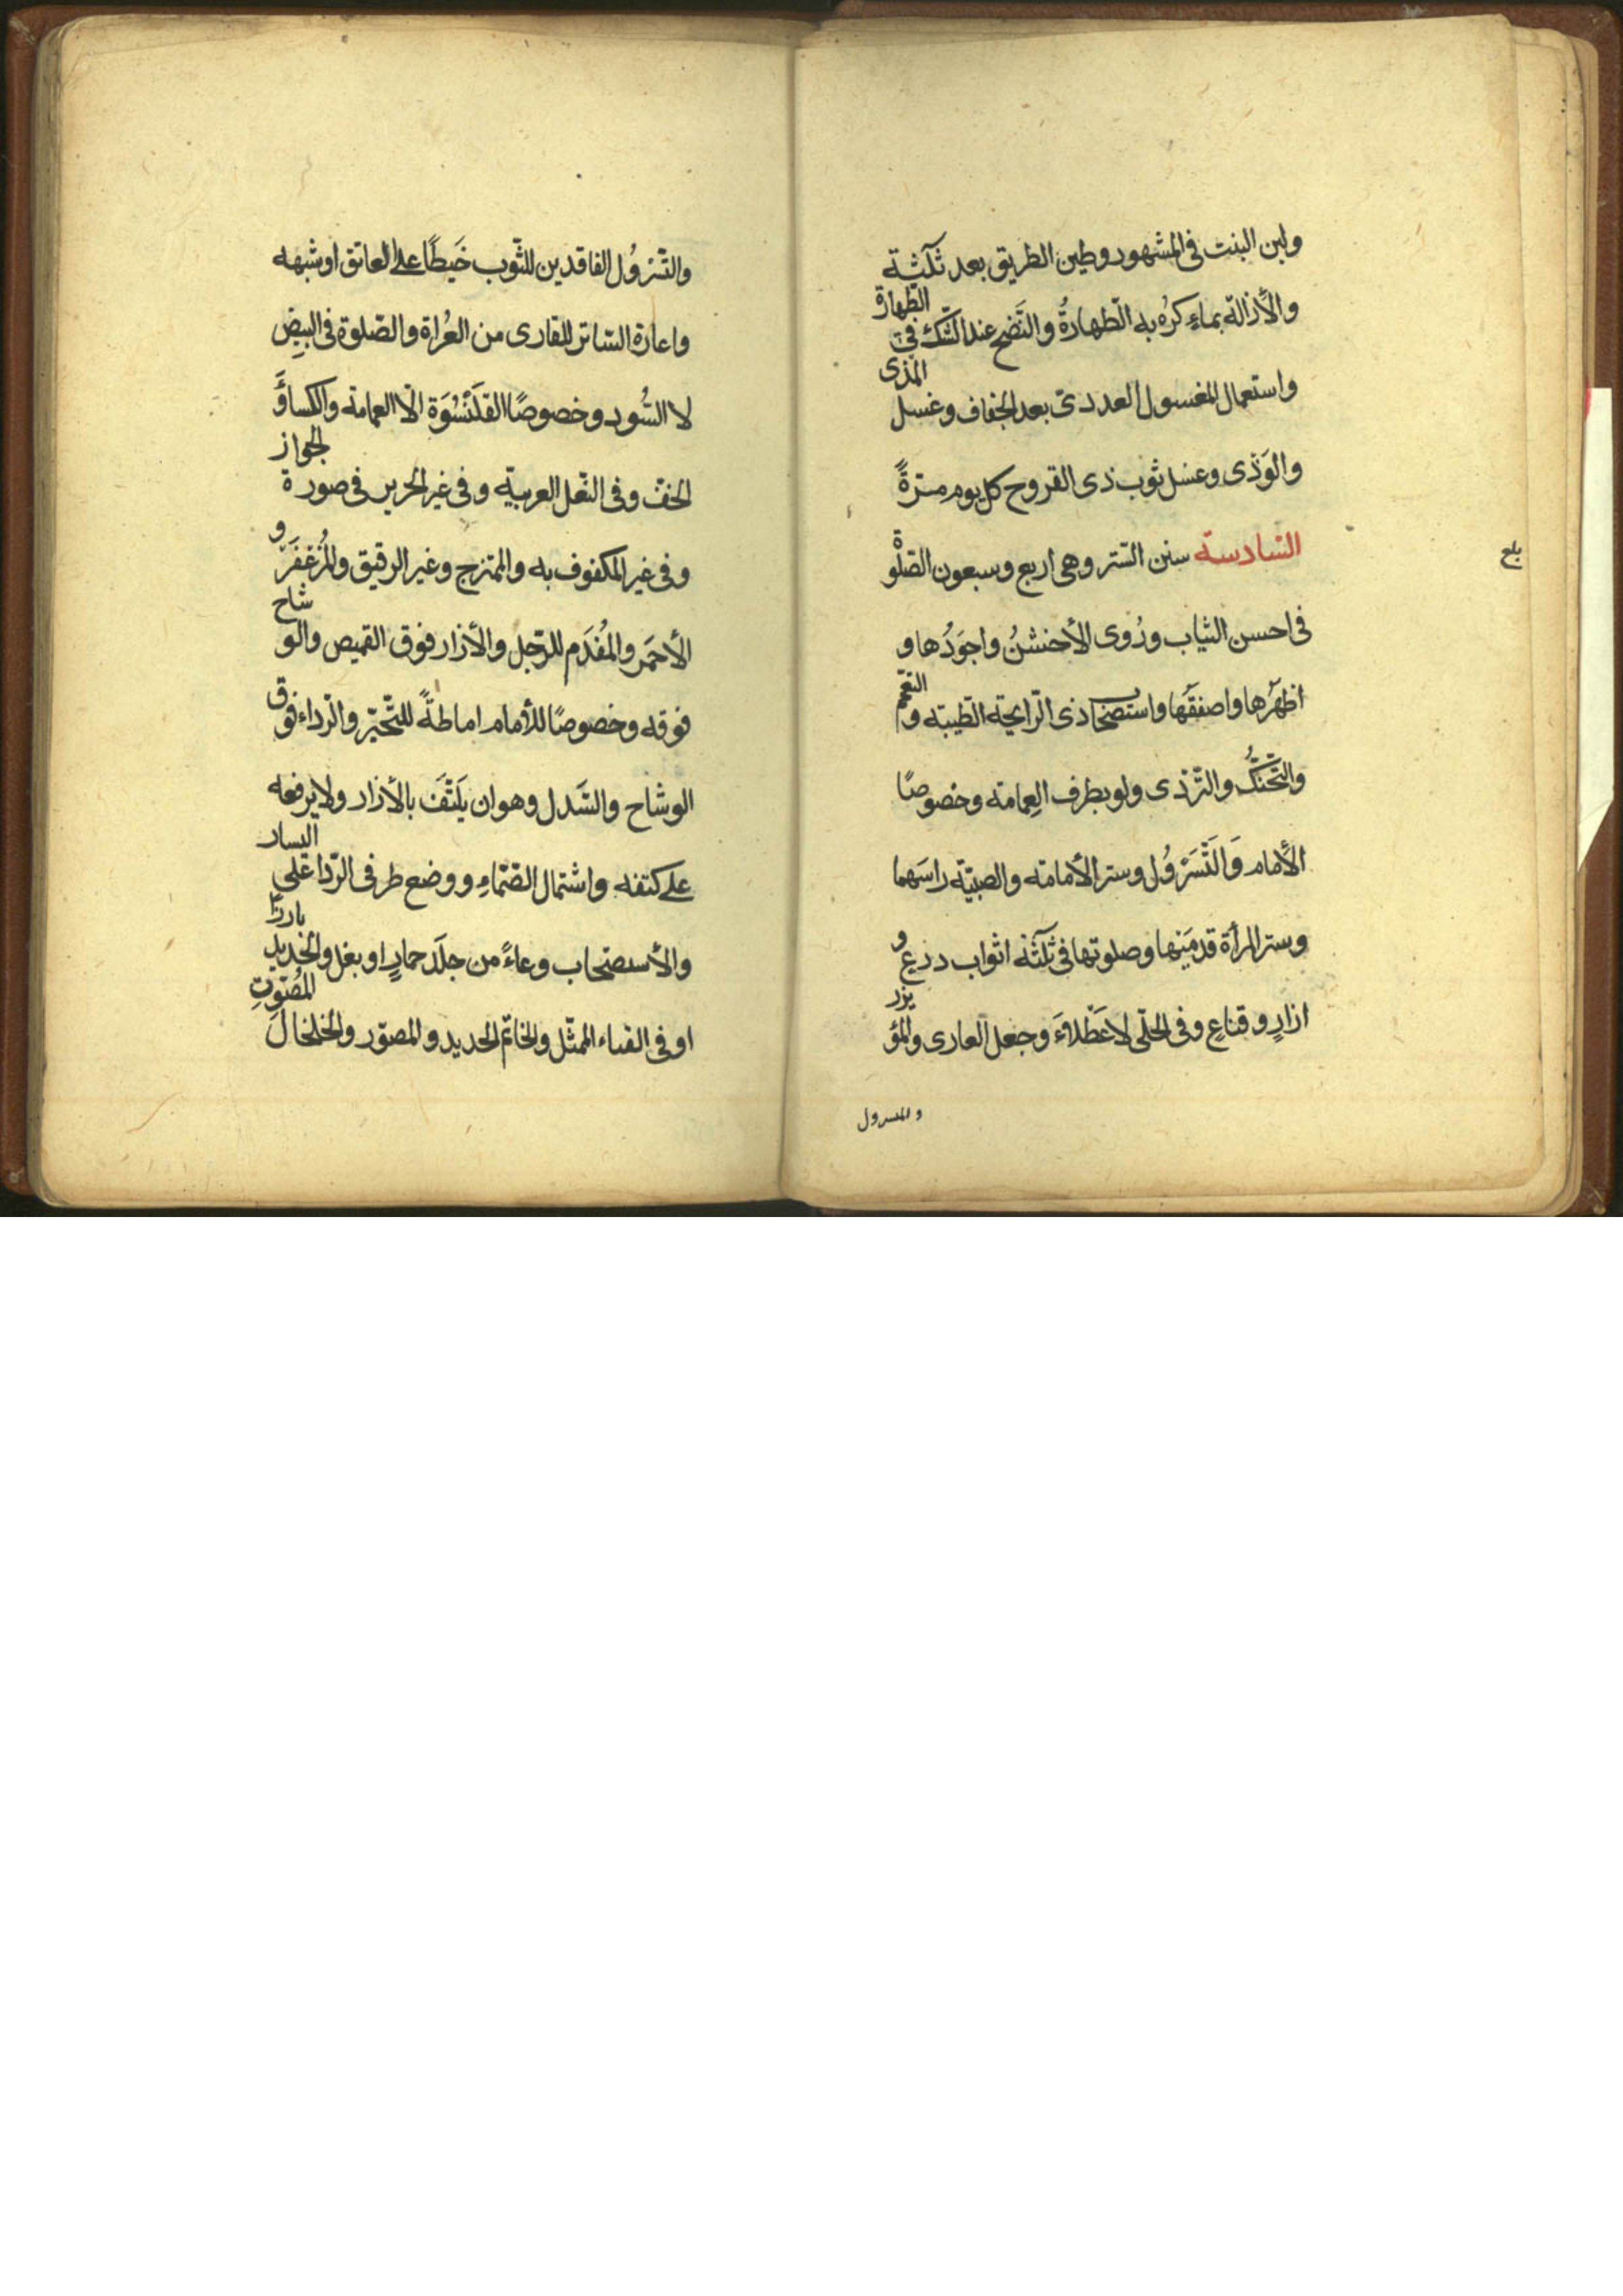 ولبن البنت فى المشهور وطين الطريق بعد ثلثة
والأزالة بماءٍ كرُه به الطّهارةُ والنَّضح عند الشّك فى الطّهارة
واستعمال المغسول العددىّ بعد الجفاف وغسل المذى
والوَذى وغسل ثوب ذى القروح كل يوم مرّةً
السّادسة سنن السّتر وهى اربع وسبعون الصّلوة
بلغ
فى احسن الثياب ورُوى الأخشنُ واجوَدُها و
اطهرُها واصفقُها واستصحاب ذى الرّايحة الطّيبة والتعمّم
والتّحنّكُ والتّردّى ولو بطرف العِمامة وخصوصًا
الأمام وَالتَسَرْوُل وستر الأمامة والصبيّة راسَهما
وستر المرأة قدمَيْها وصلوتها فى ثلثة اثواب درعٍ و
ازارٍ وقناعٍ وفى الحلّى لا عَطْلاءَ وجعل العارى والمؤتزر
والمسرول
والتّسرْوُل الفاقدين للثّوب خَيطًا على العاتق او شبهه
واعارة السّاتر للقارى من العُراة والصّلوة فى البيضِ
لا السُّود وخصوصًا القلَنْسُوَة الّا العمامة والكساءَ و
الخفّ وفى النّعل العربيّة وفى غير الحرير فى صورة الجواز
وفى غير المكفوف به والممتزج وغير الرقيق والمُزَعْفَر و
الأحمَر والمُفْدَم للرّجل والأزار فوق القميص والوشاح
فوقه وخصوصًا للأمام اماطةً للتّحيّر والرّداء فوق
الوشاح والسَّدل وهو ان يَلتَفّ بالأزار ولا يرفعه
على كتفه واشتمال الصّمّاءِ ووضع طرفى الرّدا على اليسار
والأستصحاب وعاءً من جلَد حمارٍ او بغل والحديد بارزًا
او فى القباء الممثّل والخاتَم الحديد والمصوّر والخلخال المُصَوّتِ